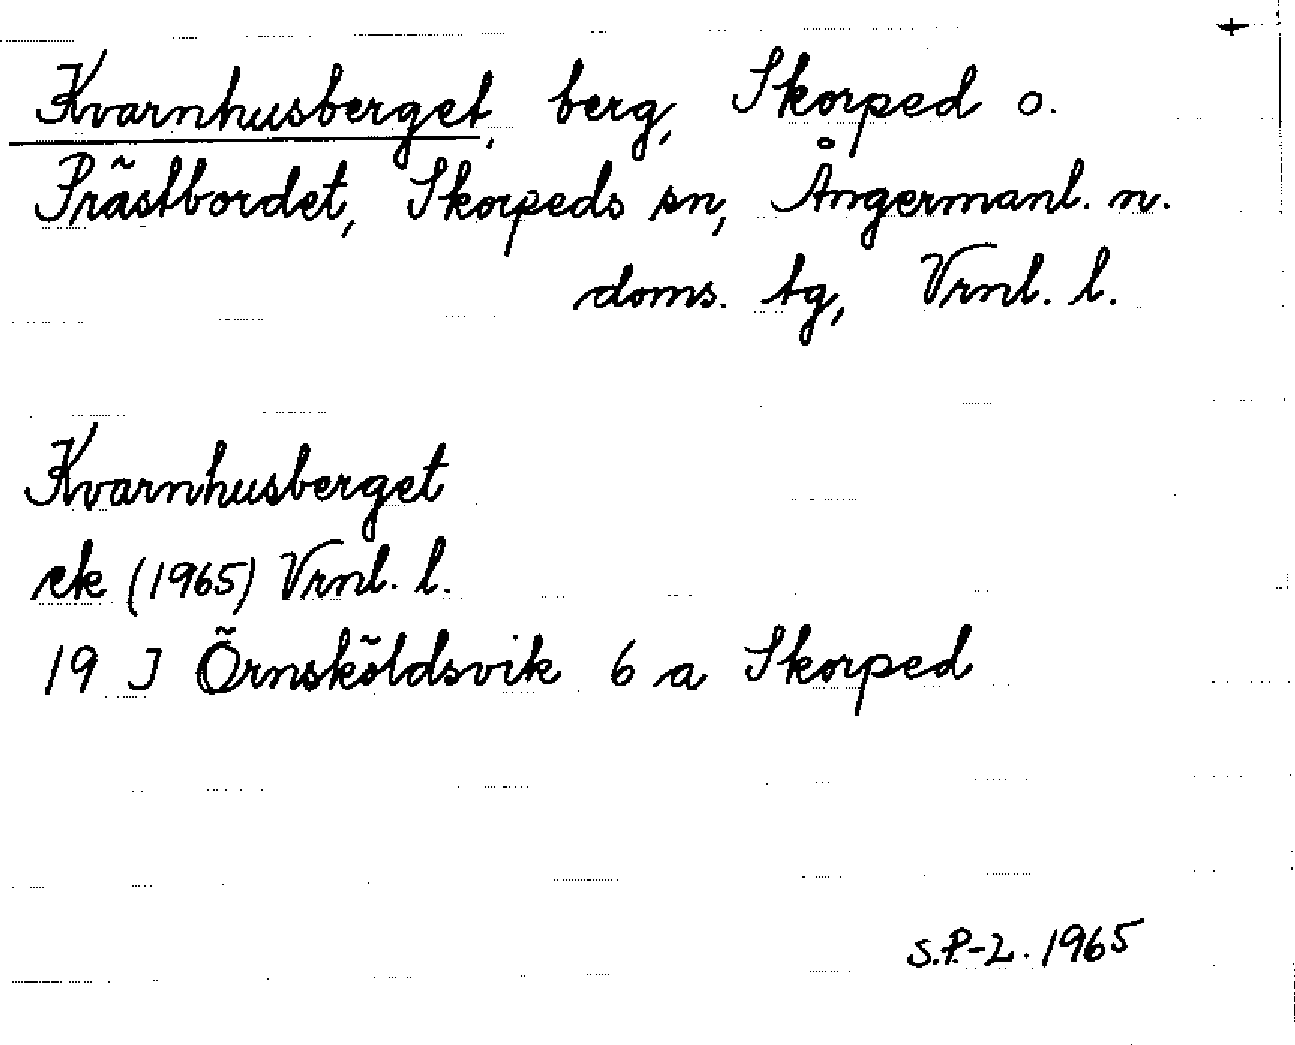 +
Kvarnhusberget, berg, Skorped o.
Prästbordet, Skorpeds sn, Ångermanl. n.
doms. tg, Vrnl. l.
Kvarnhusberget
ek (1965) Vrnl. l.
19 J Örnsköldsvik 6 a Skorped
S.P-L. 1965